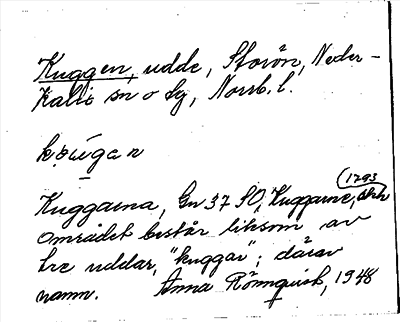 Kuggen, udde, Storön, Neder-
Kalix sn o tg, Norrb. l.
Kuggarna, Gn 37 SO, Kuggarne,
1293
området består liksom av
tre uddar, "kuggar"; därav
namn. Anna Rönnquist, 1948